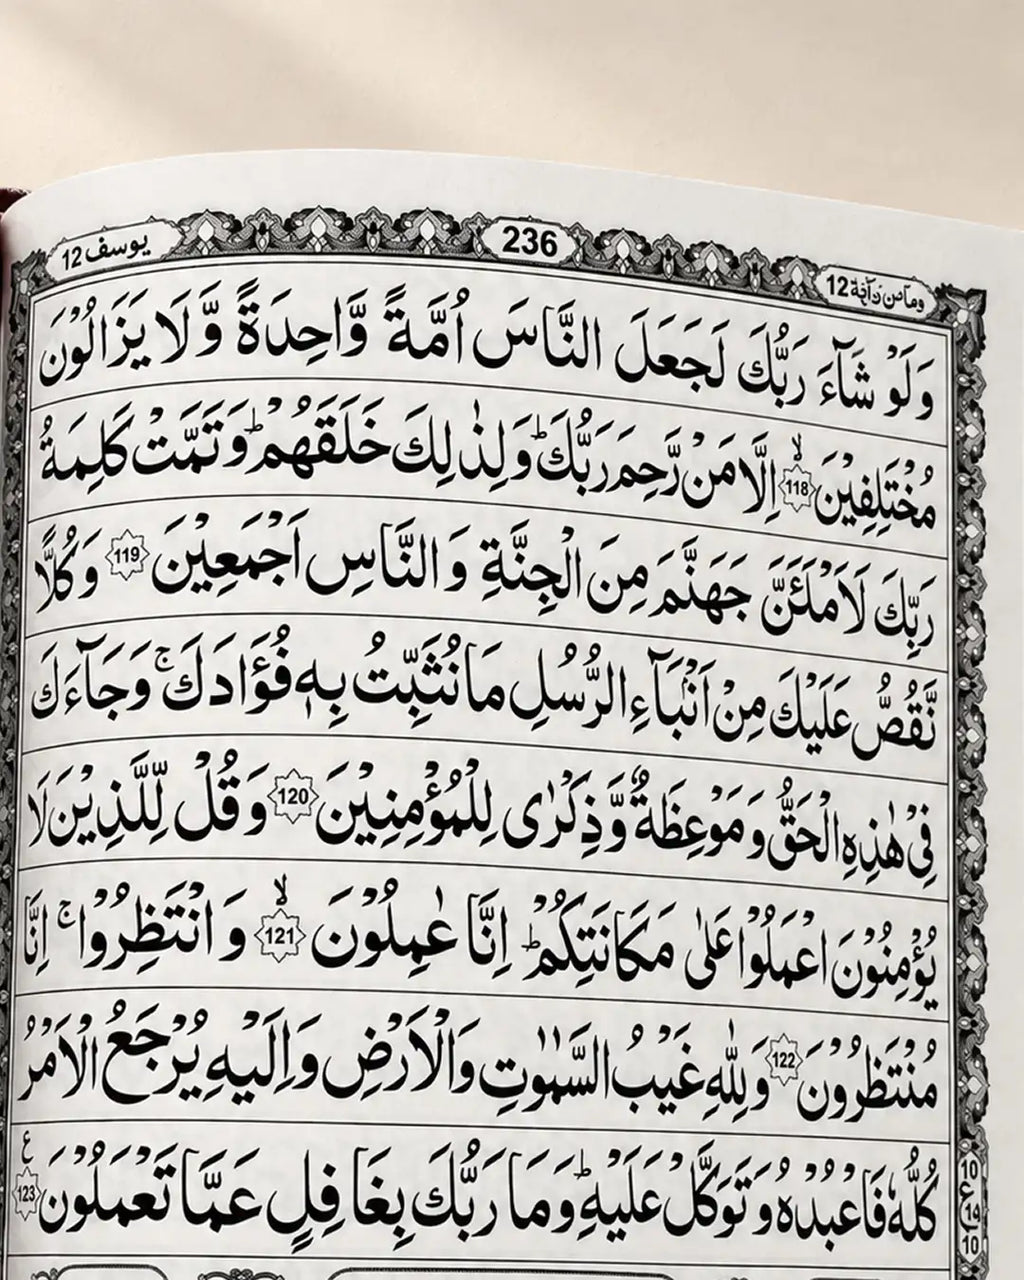 يوسف 12
236
ومآ من دآبة 12
وَلَوۡ شَآءَ رَبُّكَ لَجَعَلَ النَّاسَ اُمَّةً وَّاحِدَةً وَّلَا يَزَالُوۡنَ
مُخۡتَلِفِيۡنَۙ‏ 118 اِلَّا مَنۡ رَّحِمَ رَبُّكَ‌ ؕ وَلِذٰلِكَ خَلَقَهُمۡ‌ ؕ وَتَمَّتۡ كَلِمَةُ
رَبِّكَ لَاَمۡلَـئَنَّ جَهَنَّمَ مِنَ الۡجِنَّةِ وَالنَّاسِ اَجۡمَعِيۡنَ‏ 119 وَكُلًّا
نَّقُصُّ عَلَيۡكَ مِنۡ اَنۡۢبَآءِ الرُّسُلِ مَا نُثَبِّتُ بِهٖ فُؤَادَكَ‌ ۚ وَجَآءَكَ
فِىۡ هٰذِهِ الۡحَـقُّ وَمَوۡعِظَةٌ وَّذِكۡرٰى لِلۡمُؤۡمِنِيۡنَ‏ 120 وَقُلْ لِّـلَّذِيۡنَ لَا
يُؤۡمِنُوۡنَ اعۡمَلُوۡا عَلٰى مَكَانَتِكُمۡؕ اِنَّا عٰمِلُوۡنَۙ‏ 121 وَانْتَظِرُوۡا‌ ۚ اِنَّا
مُنۡتَظِرُوۡنَ‏ 122 وَلِلّٰهِ غَيۡبُ السَّمٰوٰتِ وَالۡاَرۡضِ وَاِلَيۡهِ يُرۡجَعُ الۡاَمۡرُ
كُلُّهٗ فَاعۡبُدۡهُ وَتَوَكَّلۡ عَلَيۡهِ‌ؕ وَمَا رَبُّكَ بِغَافِلٍ عَمَّا تَعۡمَلُوۡنَ‏ 123 ع
10
ع
14
10